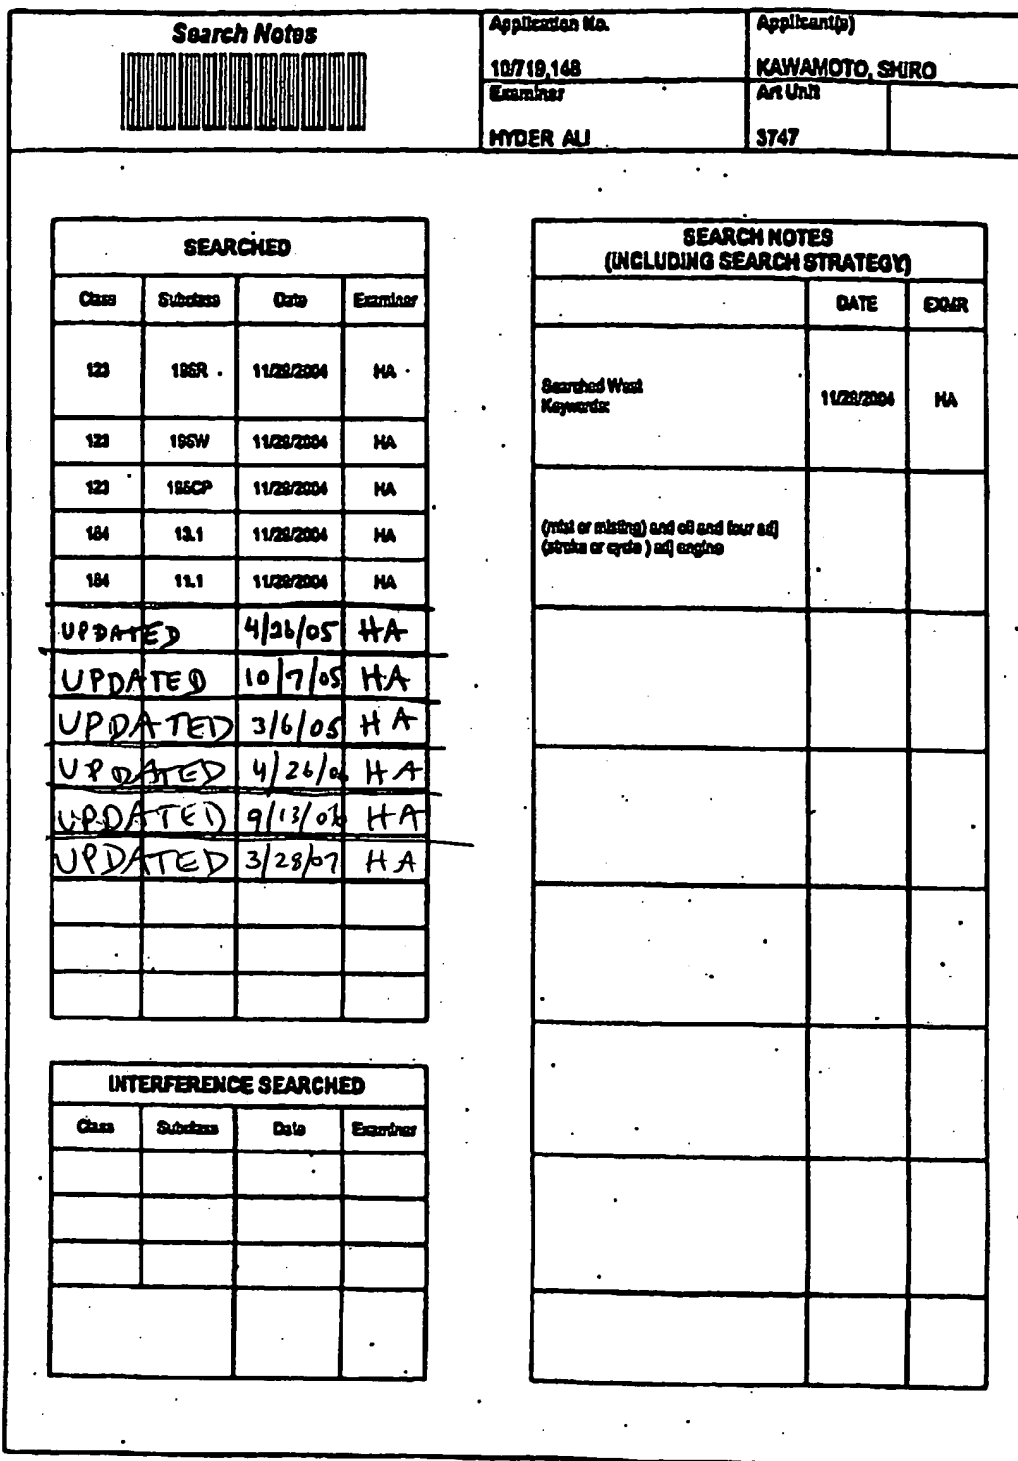 Search Notes
Application No.
Applicant(s)
10/719,148
KAWAMOTO, SHIRO
Examiner
Art Unit
HYDER ALI
3747
SEARCHED
Class Subclass Date Examiner
123 196R 11/29/2004 HA
123 196W 11/29/2004 HA
123 196CP 11/29/2004 HA
184 13.1 11/29/2004 HA
184 11.1 11/29/2004 HA
UPDATED 4/26/05 HA
UPDATED 10/7/05 HA
UPDATED 3/6/05 HA
UPDATED 4/26/06 HA
UPDATED 9/13/06 HA
UPDATED 3/28/07 HA
INTERFERENCE SEARCHED
Class Subclass Date Examiner
SEARCH NOTES
(INCLUDING SEARCH STRATEGY)
DATE EXMR
Searched West
Keywords:
11/29/2004 HA
(mist or misting) and oil and four adj
(stroke or cycle ) adj engine